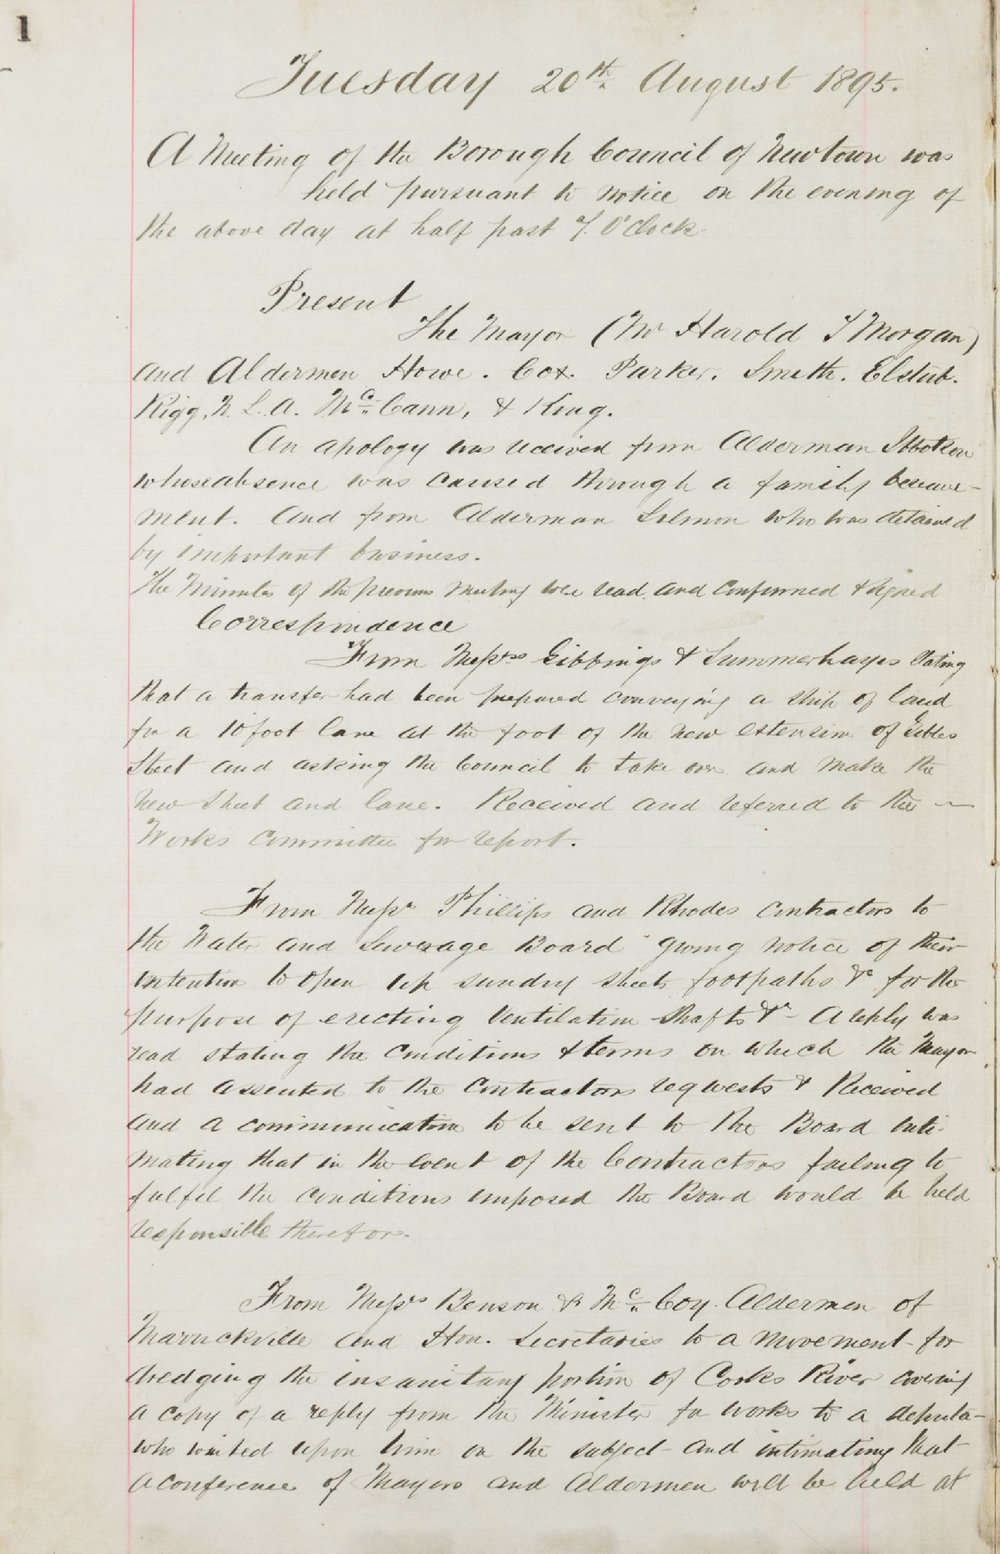 1
Tuesday 20th. August 1895.
A Meeting of the Borough Council of Newtown was
held pursuant to notice on the evening of
the above day at half past 7. O'Clock
Present
The Mayor (Mr Harold T Morgan)
and Aldermen Howe. Cox. Parker. Smith. Elstub.
Rigg, R. L. A. McCann, & King.
An apology was received from Alderman Ibbotson
whose absence was caused through a family bereave-
ment. And from Alderman Salmon who was detained
by important business.
The Minutes of the previous Meeting were read and confirmed & signed
Correspondence
From Messrs Gibbings & Summerhayes stating
that a transfer had been prepared conveying a strip of land
for a 10 foot lane at the foot of the new extension of Eebles
Street and asking the Council to take over and make the
new street and lane. Received and referred to the —
Works Committee for report.
From Messrs Phillips and Rhodes contractors to
the Water and Sewerage Board giving notice of their
intention to open up sundry streets footpaths &c for the
purpose of erecting Ventilation Shafts &c - A reply was
read stating the conditions & terms on which the Mayor
had assented to the Contractors requests & Received
and a communication to be sent to the Board inti-
mating that in the event of the Contractors failing to
fulfil the conditions imposed the Board would be held
responsible therefor.
From Messrs Benson & McCoy. Aldermen of
Marrickville and Hon. Secretaries to a movement for
dredging the insanitary portion of Cooks River covering
a copy of a reply from the Minister for works to a deputa-
who waited upon him on the subject and intimating that
a conference of Mayors and Aldermen will be held at